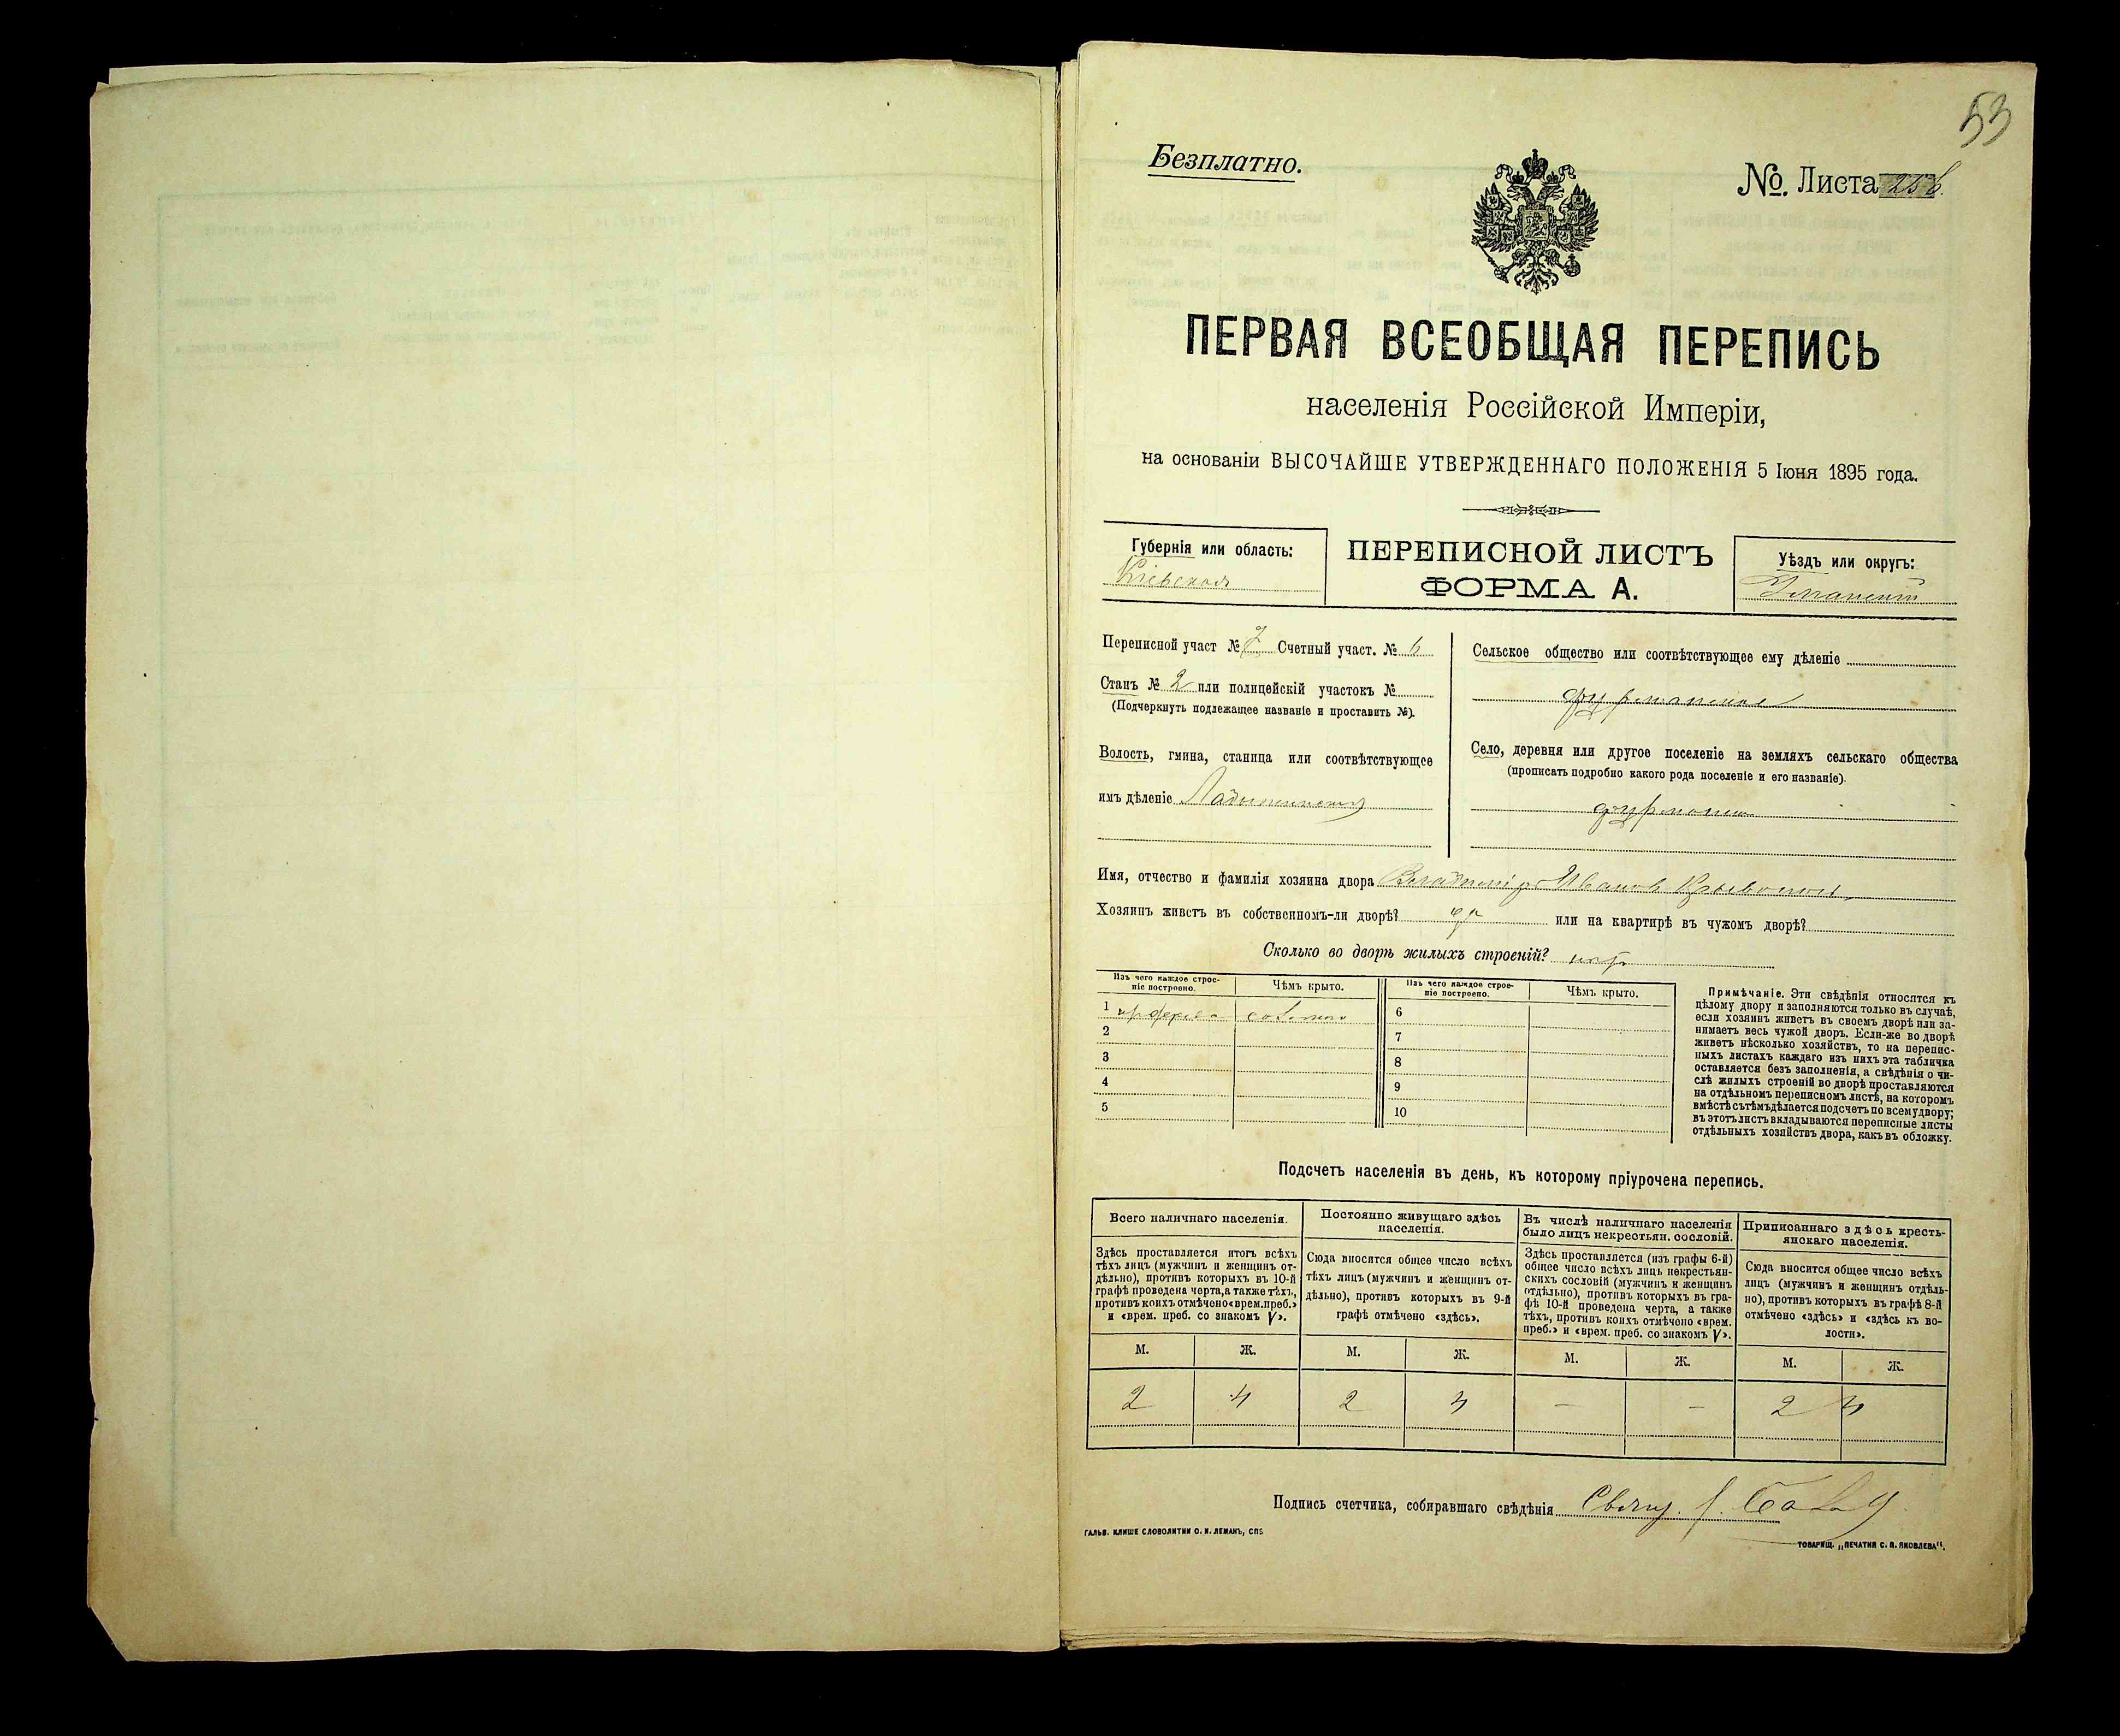 53
Безплатно.
№. Листа
ПЕРВАЯ ВСЕОБЩАЯ ПЕРЕПИСЬ
населенія Россійской Имперіи,
на основаніи ВЫСОЧАЙШЕ УТВЕРЖДЕННАГО ПОЛОЖЕНІЯ 5 Іюня 1895 года.
Губернія или область:
Кіевская
ПЕРЕПИСНОЙ ЛИСТЪ
ФОРМА А.
Уѣздъ или округъ:
Уманскій
Переписной участ № 2 Счетный участ. №
Станъ № 2 или полицейскій участокъ №
(Подчеркнуть подлежащее названіе и проставить №).
Волость, гмина, станица или соотвѣтствующее
имъ дѣленіе Ладыжинская
Сельское общество или соотвѣтствующее ему дѣленіе
фурманское
Село, деревня или другое поселеніе на земляхъ сельскаго общества
(прописать подробно какого рода поселеніе и его названіе).
Имя, отчество и фамилія хозяина двора Владиміръ Ивановъ
Хозяинъ живетъ въ собственномъ-ли дворѣ? или на квартирѣ въ чужомъ дворѣ?
Сколько во дворѣ жилыхъ строеній?
Изъ чего каждое строе-
ніе построено.
Чѣмъ крыто.
Изъ чего каждое строе-
ніе построено.
Чѣмъ крыто.
1 соломою
2
3
4
5
6
7
8
9
10
Примѣчаніе. Эти свѣдѣнія относятся къ
цѣлому двору и заполняются только въ случаѣ,
если хозяинъ живетъ въ своемъ дворѣ или за-
нимаетъ весь чужой дворъ. Если-же во дворѣ
живетъ нѣсколько хозяйствъ, то на перепис-
ныхъ листахъ каждаго изъ нихъ эта табличка
оставляется безъ заполненія, а свѣдѣнія о чи-
слѣ жилыхъ строеній во дворѣ проставляются
на отдѣльномъ переписномъ листѣ, на которомъ
вмѣстѣ съ тѣмъ дѣлается подсчетъ по всему двору;
въ этотъ листъ вкладываются переписные листы
отдѣльныхъ хозяйствъ двора, какъ въ обложку.
Подсчетъ населенія въ день, къ которому пріурочена перепись.
Всего наличнаго населенія.
Здѣсь проставляется итогъ всѣхъ
тѣхъ лицъ (мужчинъ и женщинъ от-
дѣльно), противъ которыхъ въ 10-й
графѣ проведена черта, а также тѣхъ,
противъ коихъ отмѣчено «врем. преб.»
и «врем. преб. со знакомъ V».
Постоянно живущаго здѣсь
населенія.
Сюда вносится общее число всѣхъ
тѣхъ лицъ (мужчинъ и женщинъ от-
дѣльно), противъ которыхъ въ 9-й
графѣ отмѣчено «здѣсь».
Въ числѣ наличнаго населенія
было лицъ некрестьян. сословій.
Здѣсь проставляется (изъ графы 6-й)
общее число всѣхъ лицъ некрестьян-
скихъ сословій (мужчинъ и женщинъ
отдѣльно), противъ которыхъ въ гра-
фѣ 10-й проведена черта, а также
тѣхъ, противъ коихъ отмѣчено «врем.
преб.» и «врем. преб. со знакомъ V».
Приписаннаго здѣсь кресть-
янскаго населенія.
Сюда вносится общее число всѣхъ
лицъ (мужчинъ и женщинъ отдѣль-
но), противъ которыхъ въ графѣ 8-й
отмѣчено «здѣсь» и «здѣсь къ во-
лости».
М. Ж. М. Ж. М. Ж. М. Ж.
2 4 2 4 — — 2 4
Подпись счетчика, собиравшаго свѣдѣнія Свящ.
ГАЛЬВ. КЛИШЕ СЛОВОЛИТНИ О. И. ЛЕМАНЪ, СПБ
ТОВАРИЩ. „ПЕЧАТНЯ С. П. ЯКОВЛЕВА“.